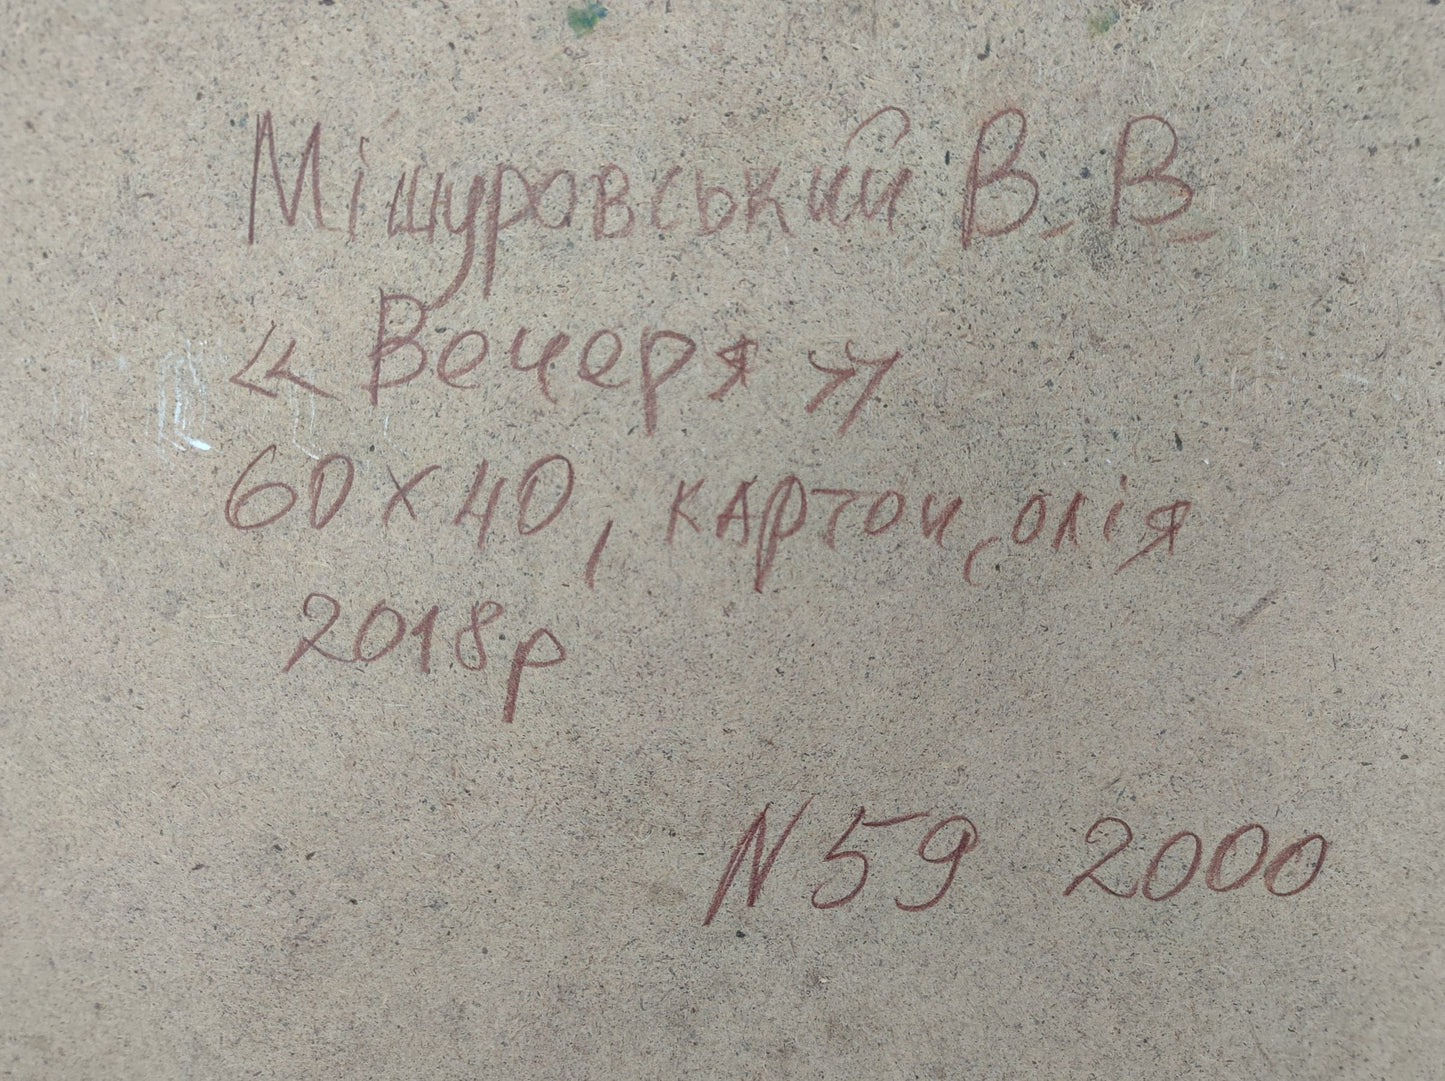 Мішуровський В. В.
« Вечеря »
60×40, картон, олія
2018р
N 59 2000